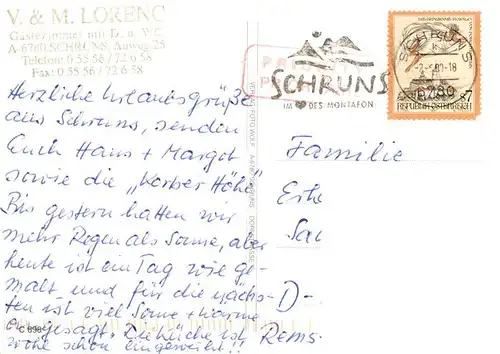 V. & M. LORENC
Gästezimmer mit D. u. WC
A-6780 SCHRUNS, Auweg 25
Telefon: 0 55 58 / 72 6 58
Fax: 0 55 56 / 72 6 58
SCHRUNS
IM DES MONTAFON
SCHRUNS
6780
REPUBLIK ÖSTERREICH S7
Herzliche Urlaubsgrüße
aus Schruns, senden
Euch Hans + Margot
sowie die "Korber Höhe"
Bis gestern hatten wir
mehr Regen als Sonne, aber
heute ist ein Tag wie ge-
malt und für die nächs-
ten ist viel Sonne + Wärme
angesagt. Die Küche ist
wohl schon eingeweiht!!
Familie
D-
Rems